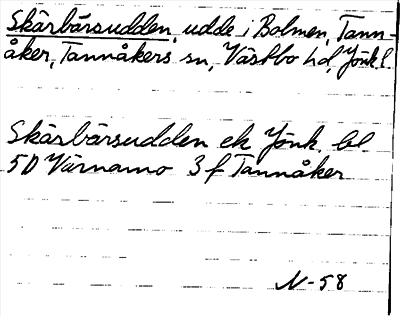 Skärbärsudden, udde i Bolmen, Tann-
åker, Tannåkers sn, Västbo hd, Jönk. l.
Skärbärsudden ek Jönk. bl.
5D Värnamo 3f Tannåker
N-58